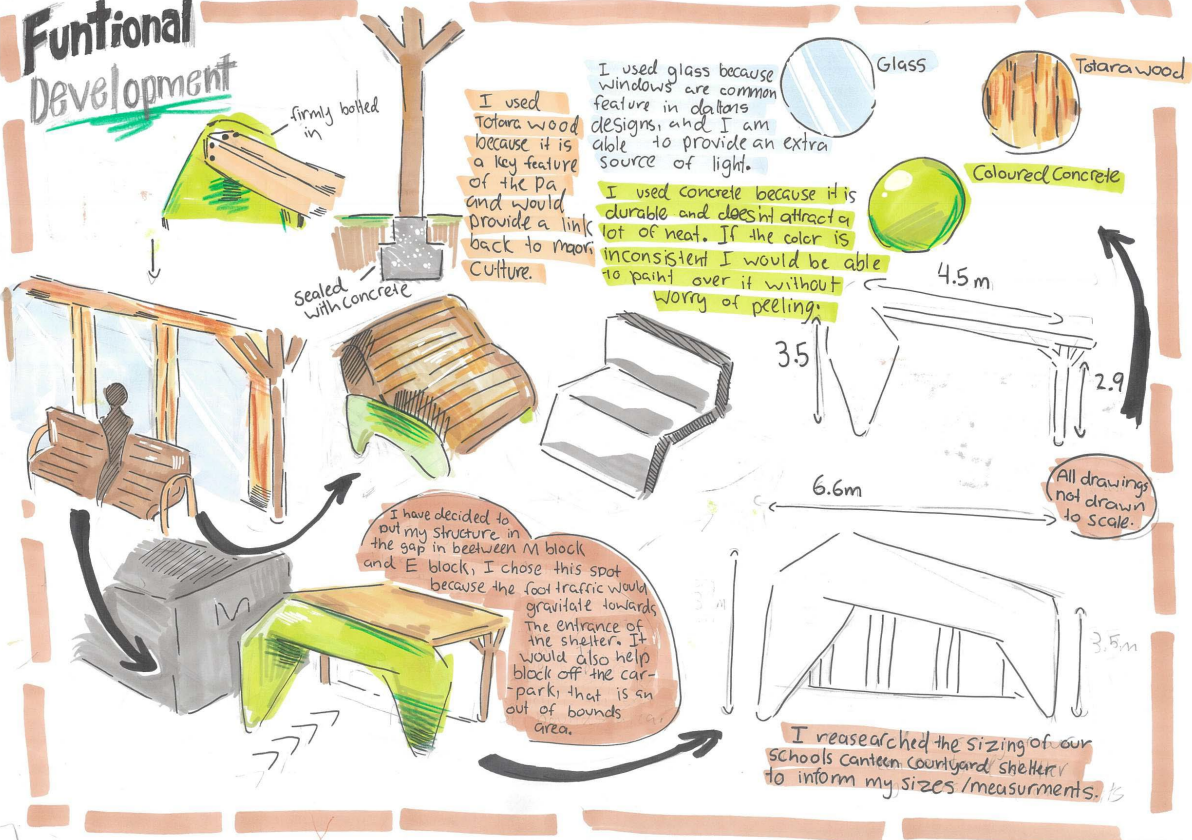 Funtional
Development
firmly bolted
in
sealed
with concrete
I used
Totara wood
because it is
a key feature
of the Pa
and would
provide a link
back to maori
culture.
I used glass because
windows are common
feature in daltons
designs, and I am
able to provide an extra
source of light.
Glass
Totara wood
Coloured Concrete
I used concrete because it is
durable and doesint attract a
lot of heat. If the color is
inconsistent I would be able
to paint over it without
worry of peeling.
4.5m
3.5
2.9
6.6m
All drawings
not drawn
to scale.
M
I have decided to
put my structure in
the gap in beetween M block
and E block, I chose this spot
because the foot traffic would
gravitate towards
the entrance of
the shelter. It
would also help
block off the car-
-park, that is an
out of bounds
area.
3.5m
I reasearched the sizing of our
schools canteen courtyard shelter
to inform my sizes/measurments.